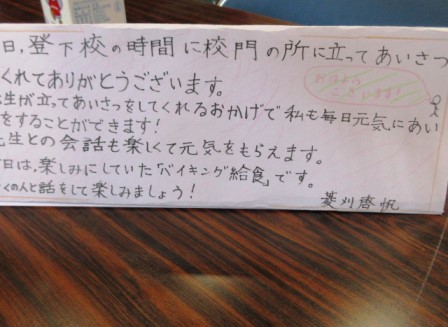 日,登下校の時間に校門の所に立ってあいさつ
くれてありがとうございます。
おはよう
ございます!
生が立ってあいさつをしてくれるおかげで私も毎日元気にあい
をすることができます!
先生との会話も楽しくて元気をもらえます。
日は,楽しみにしていた「バイキング給食」です。
くの人と話をして楽しみましょう!
菱刈啓帆